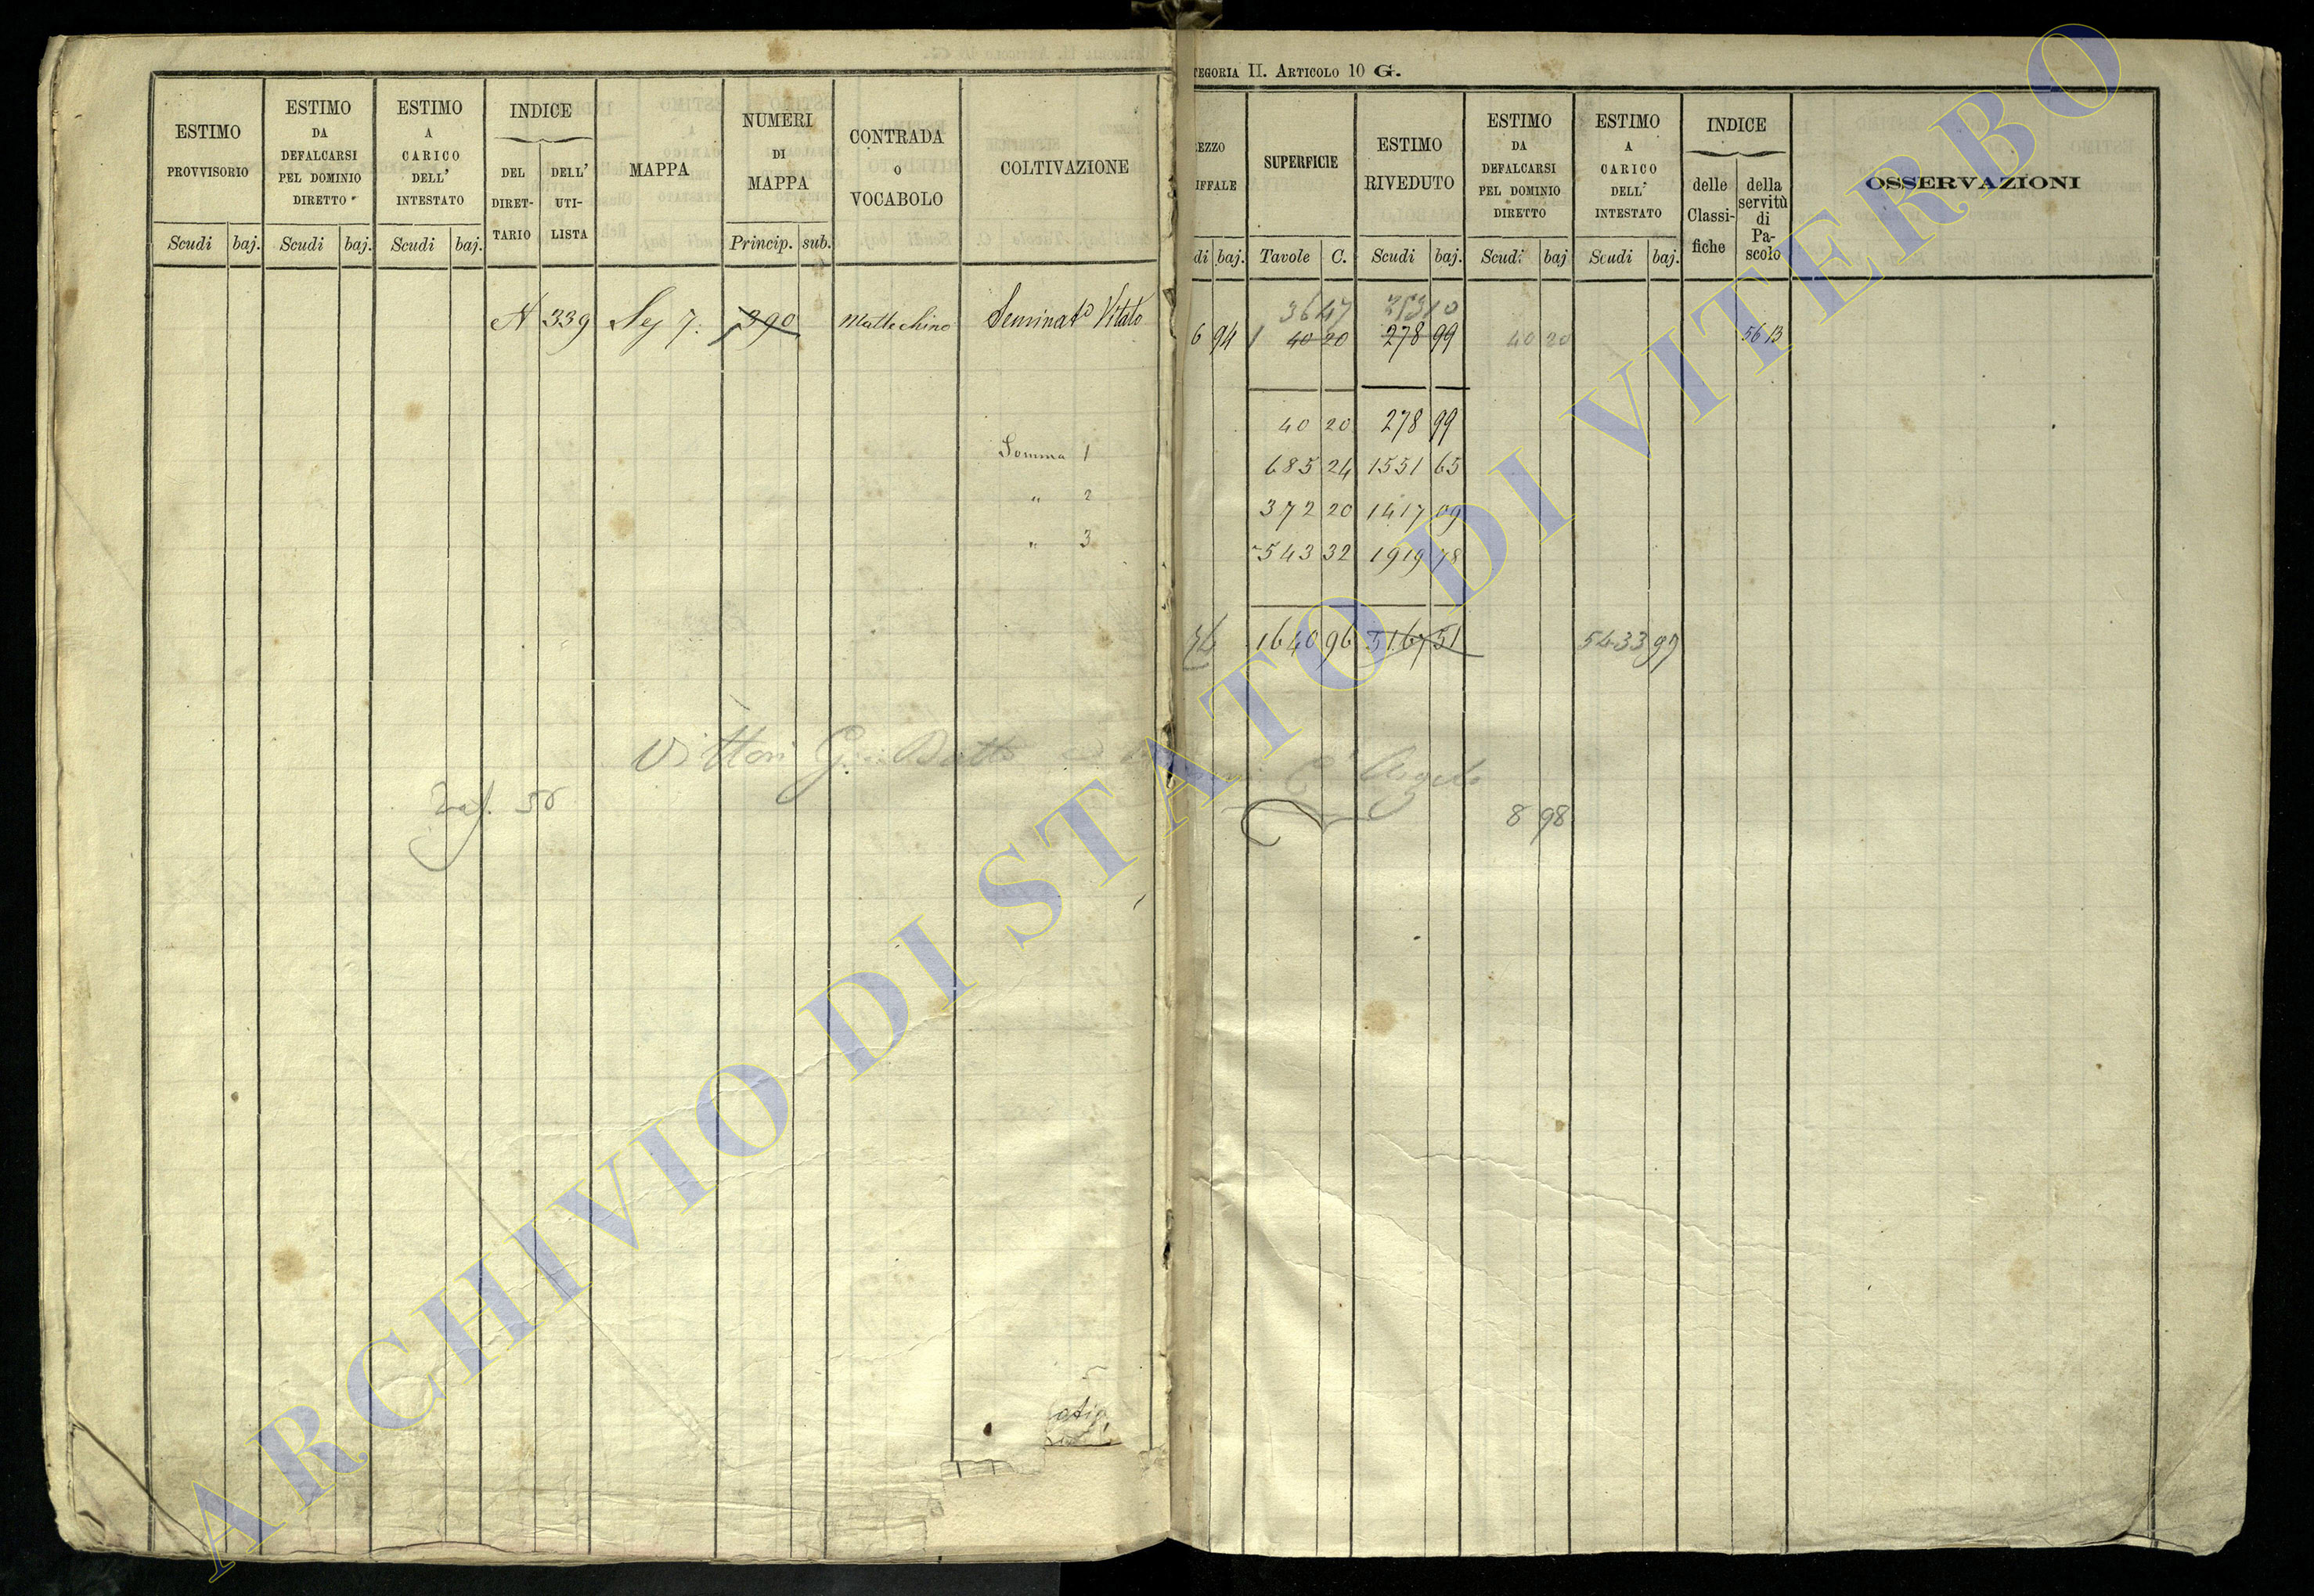 ESTIMO PROVVISORIO
Scudi baj.
ESTIMO DA DEFALCARSI PEL DOMINIO DIRETTO
Scudi baj.
ESTIMO A CARICO DELL' INTESTATO
Scudi baj.
INDICE
DEL DIRET-
TARIO
DELL' UTI-
LISTA
MAPPA
NUMERI DI MAPPA
Princip. sub.
CONTRADA O VOCABOLO
COLTIVAZIONE
339 7. 390 Seminato Vitato
Somma 1
" 2
" 3
Vittori
EGORIA II. ARTICOLO 10 G.
EZZO
IFFALE
di baj.
SUPERFICIE
Tavole C.
ESTIMO RIVEDUTO
Scudi baj.
ESTIMO DA DEFALCARSI PEL DOMINIO DIRETTO
Scudi baj
ESTIMO A CARICO DELL' INTESTATO
Scudi baj.
INDICE
delle Classi-
fiche
della servitù di Pa-
scolo
OSSERVAZIONI
36 47
6 94 40 20 278 99 40 20 56 13
40 20 278 99
685 24 1551 65
372 20 1417 09
543 32 1919 78
1640 96 5167 51 5433 97
8 98
ARCHIVIO DI STATO DI VITERBO